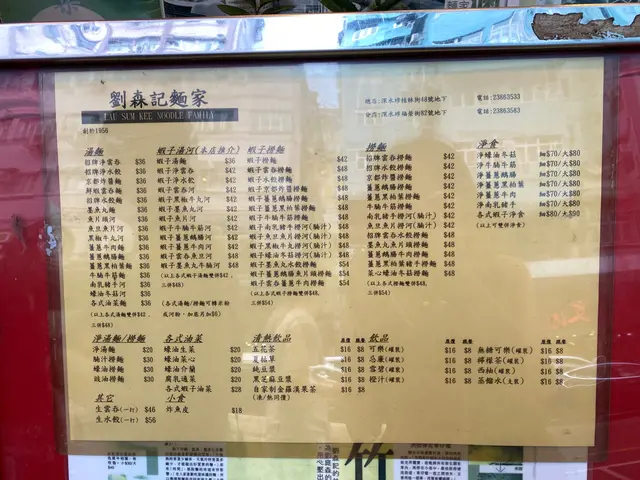 劉森記麵家
LAU SUM KEE NOODLE FAMILY
創於1956
總店:深水埗桂林街48號地下 電話:23863533
分店:深水埗福榮街82號地下 電話:23863583
湯麵
招牌淨雲吞 $36
招牌淨水餃 $36
招牌雲吞麵 $36
京都炸醬麵 $36
鮮蝦雲吞麵 $36
招牌水餃麵 $36
墨魚丸麵 $36
魚片頭河 $36
魚旦魚片河 $36
黑椒牛丸河 $36
薑蔥牛肉麵 $36
薑蔥鵝腸麵 $36
薑蔥黑柏葉麵 $36
牛腩牛筋麵 $36
南乳豬手河 $36
蠔油冬菇河 $36
各式油菜麵 $36
(以上各式湯麵雙併$42,
三併$48)
蝦子湯河(本店推介)
蝦子湯麵 $36
蝦子淨雲吞 $42
蝦子淨水餃 $42
蝦子雲吞河 $42
蝦子黑椒牛丸河 $42
蝦子墨魚丸河 $42
蝦子魚旦魚片河 $42
蝦子牛腩牛筋河 $42
蝦子薑蔥鵝腸河 $42
蝦子薑蔥牛肉河 $42
蝦子雲吞魚旦河 $48
蝦子墨魚丸牛腩河 $48
(以上各式蝦子湯河雙併$42,
三併$48)
(各式湯麵/撈麵可轉米粉
或河粉,加底另加$6)
蝦子撈麵
蝦子撈麵 $42
蝦子雲吞撈麵 $48
蝦子水餃撈麵 $48
蝦子京都炸醬撈麵 $48
蝦子薑蔥鵝腸撈麵 $48
蝦子薑蔥黑柏葉撈麵 $48
蝦子牛腩牛筋撈麵 $48
蝦子南乳豬手撈河(腩汁) $48
蝦子魚旦魚片撈河(腩汁) $48
蝦子墨魚牛丸撈河(腩汁) $48
蝦子蠔油冬菇撈河(腩汁) $48
蝦子魚丸水餃撈麵 $54
蝦子薑蔥鵝腸魚片頭撈麵 $54
蝦子薑蔥雲吞牛肉撈麵 $54
(以上各式蝦子撈麵雙併$48,
三併$54)
撈麵
招牌雲吞撈麵 $42
招牌水餃撈麵 $42
京都炸醬撈麵 $42
薑蔥鵝腸撈麵 $42
薑蔥黑柏葉撈麵 $42
牛腩牛筋撈麵 $42
南乳豬手撈河(腩汁) $42
魚旦魚片撈河(腩汁) $42
招牌雲吞水餃撈麵 $48
墨魚丸魚片頭撈麵 $48
薑蔥牛肉鵝腸撈麵 $48
薑蔥黑柏葉豬手撈麵 $48
菜心蠔油冬菇撈麵 $48
(以上各式撈麵雙併$42,
三併$48)
淨食
淨蠔油冬菇 細$70/大$80
淨牛腩牛筋 細$70/大$80
淨薑蔥鵝腸 細$70/大$80
淨薑蔥黑柏葉 細$70/大$80
淨薑蔥牛肉 細$70/大$80
淨南乳豬手 細$70/大$80
各式蝦子淨食 細$80/大$90
(以上可雙併淨食)
淨湯麵/撈麵
淨湯麵 $20
腩汁撈麵 $30
蠔油撈麵 $30
豉油撈麵 $30
其它
生雲吞(一打) $46
生水餃(一打) $56
各式油菜
蠔油生菜 $20
蠔油菜心 $20
蠔油介蘭 $20
腐乳通菜 $20
各式蝦子油菜 $28
小食
炸魚皮 $18
清熱飲品
五花茶 $16 $8
夏枯草 $16 $8
純豆漿 $16 $8
黑芝麻豆漿 $16 $8
自家制金羅漢果茶 $16 $8
(凍/熱同價)
飲品
可樂(罐裝) $16 $8
忌廉(罐裝) $16 $8
雪碧(罐裝) $16 $8
橙汁(罐裝) $16 $8
無糖可樂(罐裝) $16 $8
檸檬茶(罐裝) $16 $8
西柚(罐裝) $16 $8
蒸餾水(支裝) $16 $8
竹